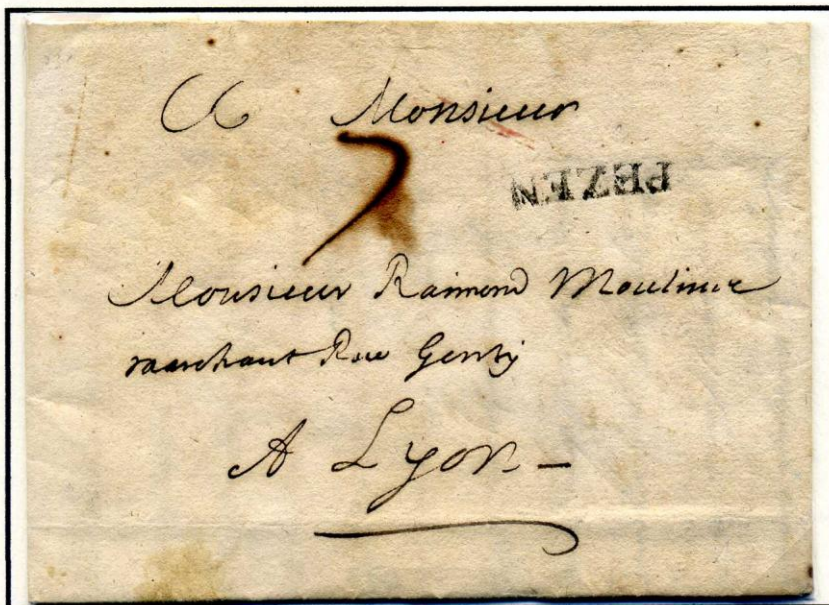 A Monsieur
7
PEZEN
Monsieur Raimond Moulinie
marchant Rue Genty
A Lyon -